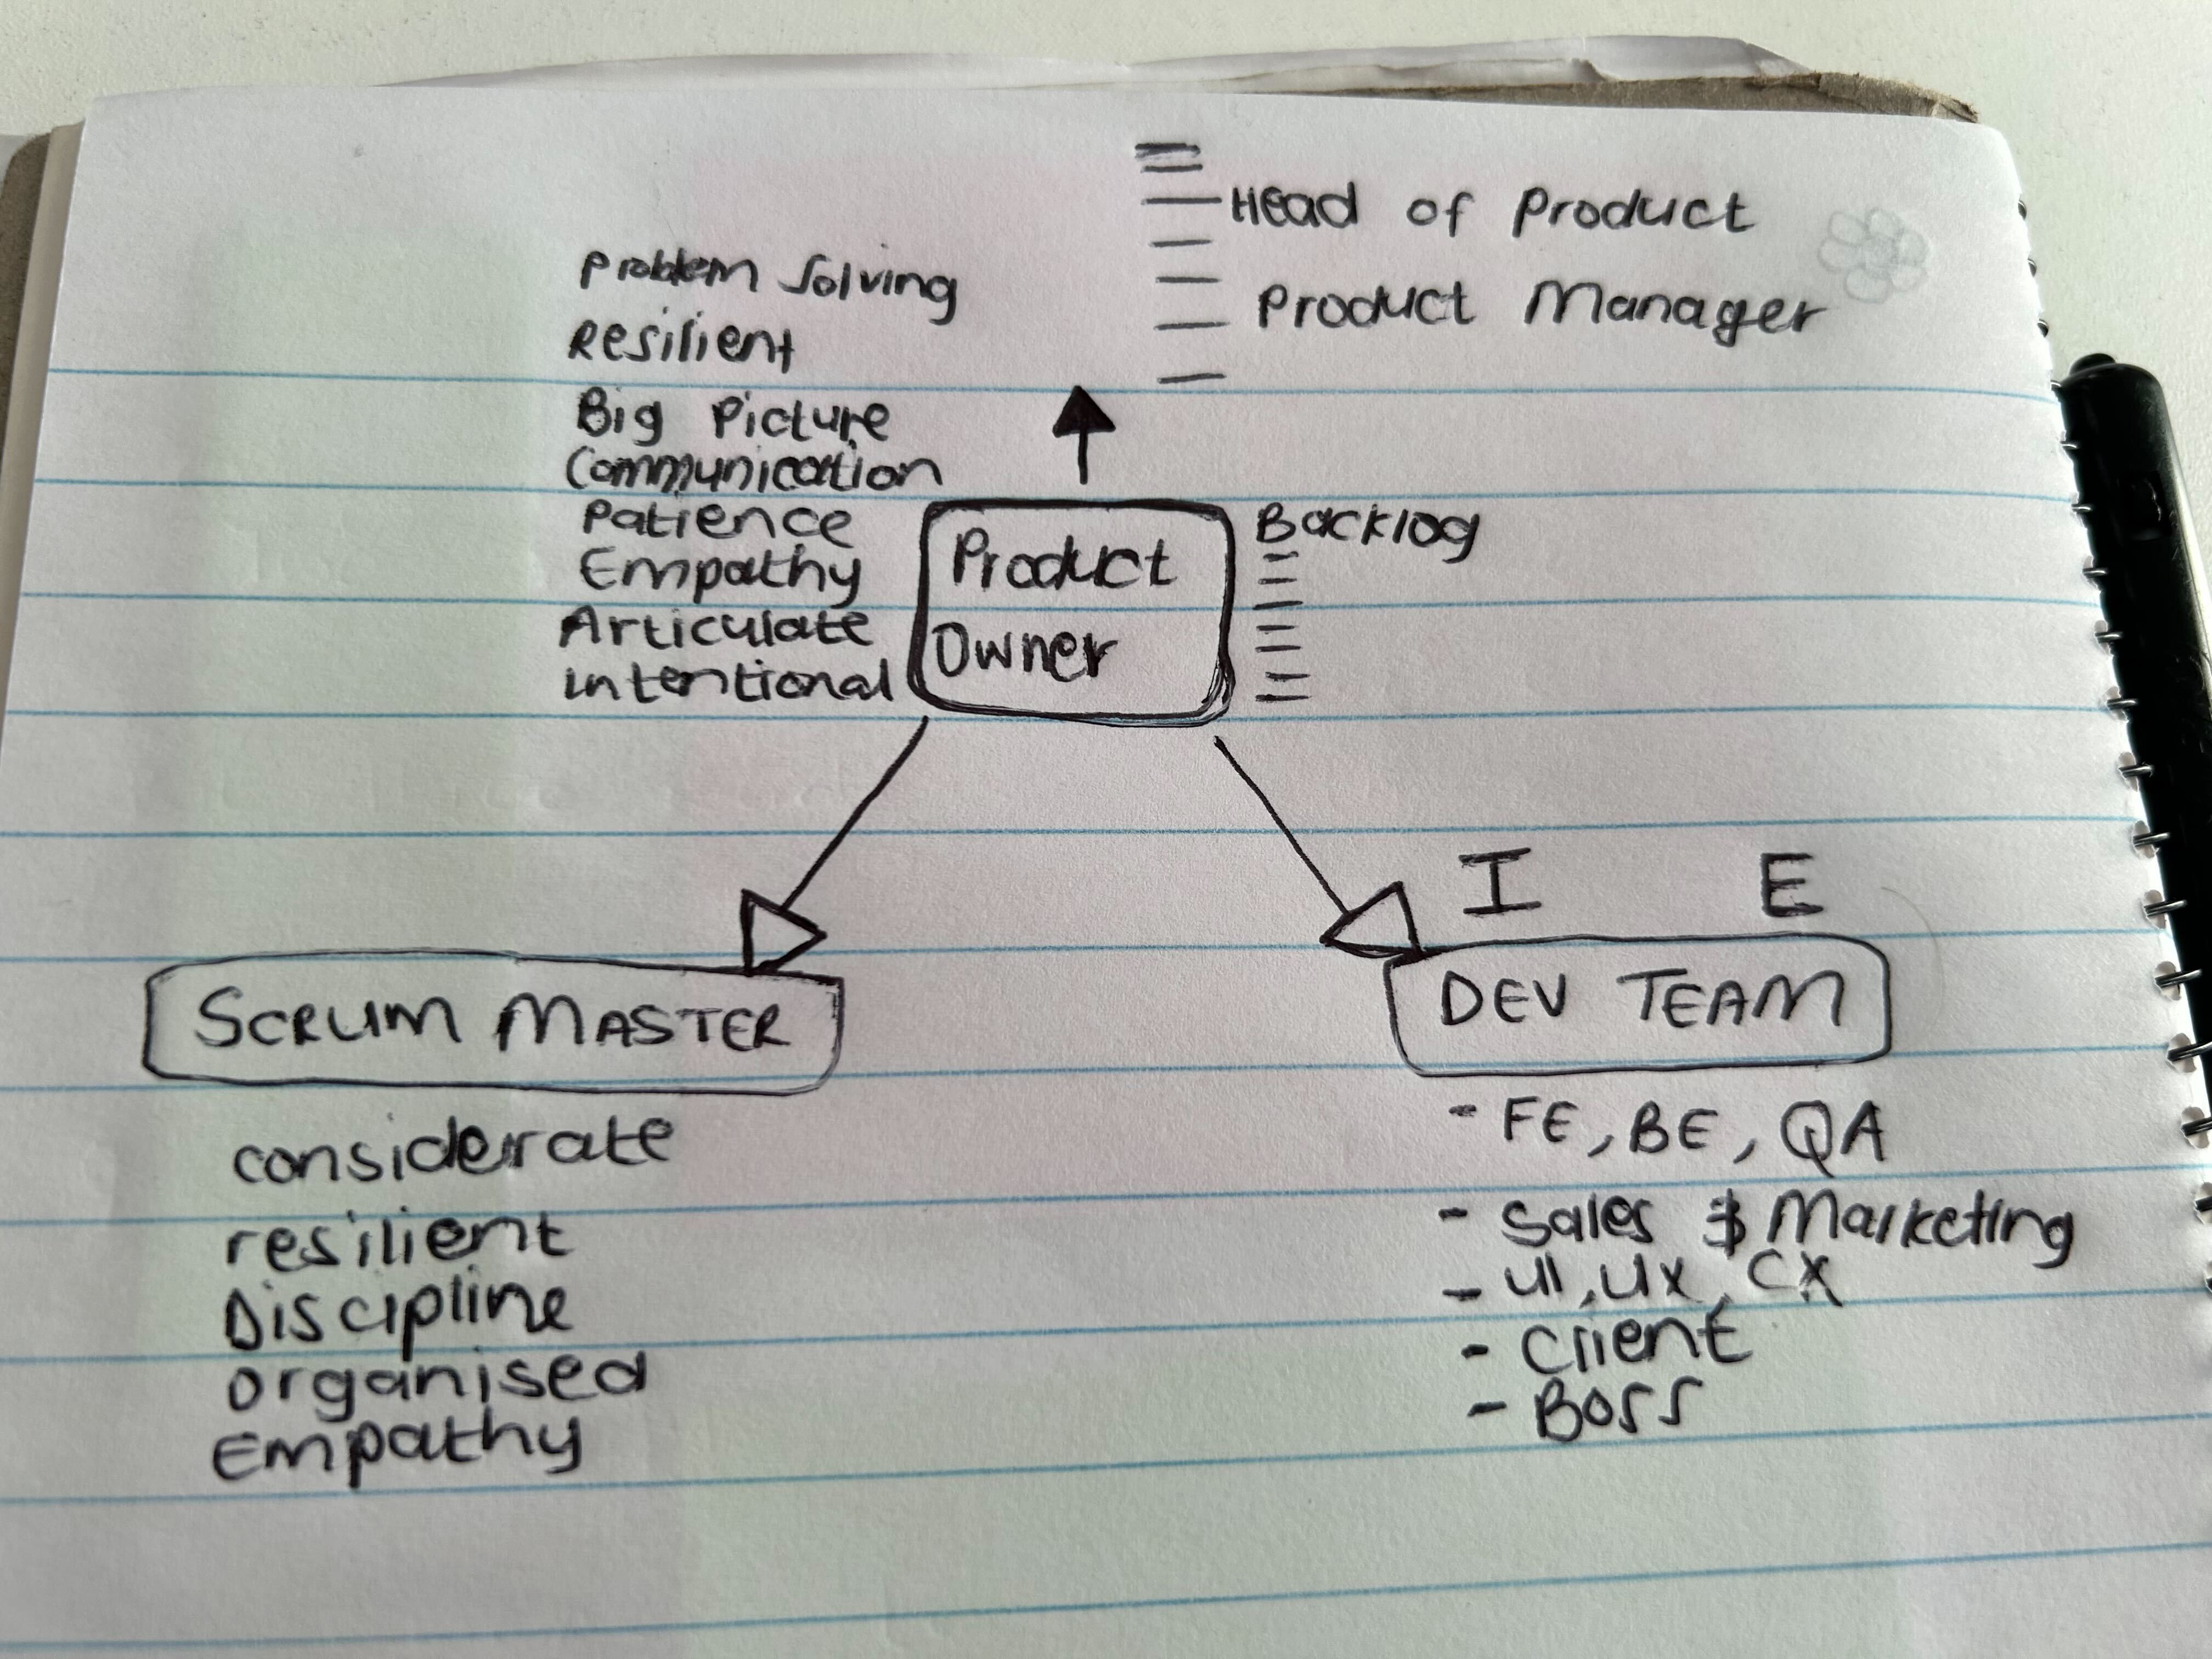 Head of Product
Product Manager
Problem Solving
Resilient
Big Picture
Communication
Patience
Empathy
Articulate
intentional
Product
Owner
Backlog
I E
SCRUM MASTER
DEV TEAM
considerate
resilient
Discipline
organised
Empathy
- FE, BE, QA
- Sales & Marketing
- UI, UX, CX
- Client
- Boss